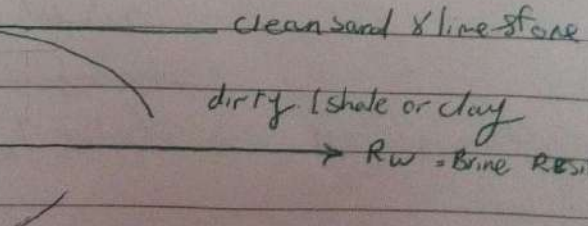 clean sand & lime stone
dirty (shale or clay
Rw = Brine Resi